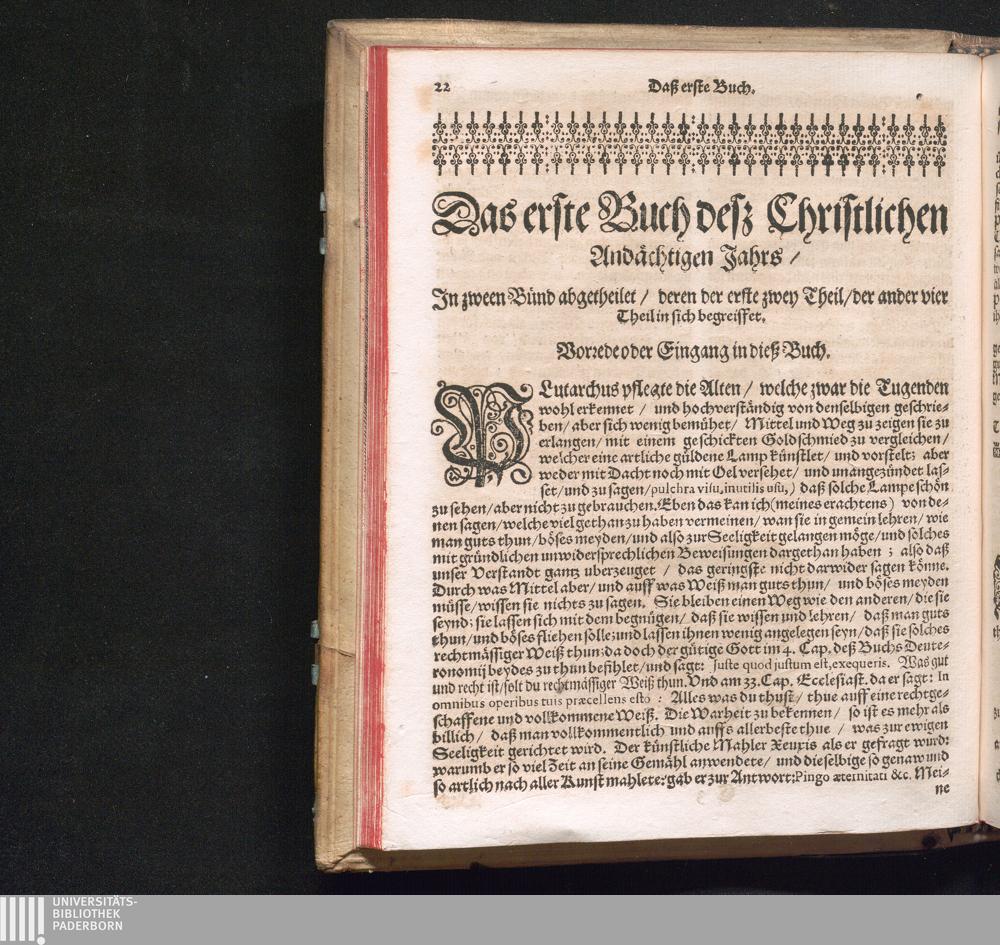 22
Daß erste Buch.
Das erste Buch desz Christlichen
Andächtigen Jahrs /
In zween Bünd abgetheilet / deren der erste zwey Theil/der ander vier
Theil in sich begreiffet.
Vorrede oder Eingang in dieß Buch.
PLutarchus pflegte die Alten / welche zwar die Tugenden
wohl erkennet / und hochverständig von denselbigen geschrie-
ben/ aber sich wenig bemühet/ Mittel und Weg zu zeigen sie zu
erlangen/ mit einem geschickten Goldschmied zu vergleichen/
welcher eine artliche güldene Lamp künstlet/ und vorstelt; aber
weder mit Dacht noch mit Oel versehet/ und unangezündet las-
set/und zu sagen/pulchra visu, inutilis usu,) daß solche Lampe schön
zu sehen/aber nicht zu gebrauchen. Eben das kan ich(meines erachtens) von de-
nen sagen/welche viel gethan zu haben vermeinen/ wan sie in gemein lehren/ wie
man guts thun/böses meyden/und also zur Seeligkeit gelangen möge/und solches
mit gründlichen unwidersprechlichen Beweisungen dargethan haben ; also daß
unser Verstandt gantz uberzeuget / das geringste nicht darwider sagen könne.
Durch was Mittel aber/ und auff was Weiß man guts thun/ und böses meyden
müsse/wissen sie nichts zu sagen. Sie bleiben einen Weg wie den anderen/die sie
seynd; sie lassen sich mit dem begnügen/ daß sie wissen und lehren/ daß man guts
thun/und böses fliehen solle;und lassen ihnen wenig angelegen seyn/daß sie solches
rechtmässiger Weiß thun:da doch der gütige Gott im 4. Cap. deß Buchs Deute-
ronomij beydes zu thun befihlet/und sagt: Juste quod justum est, exequeris. Was gut
und recht ist/solt du rechtmässiger Weiß thun. Und am 33. Cap. Ecclesiast. da er sagt: In
omnibus operibus tuis præcellens esto : Alles was du thust/ thue auff eine rechtge-
schaffene und vollkommene Weiß. Die Warheit zu bekennen/ so ist es mehr als
billich/ daß man vollkommentlich und auffs allerbeste thue / was zur ewigen
Seeligkeit gerichtet wird. Der künstliche Mahler Xeuxis als er gefragt wurd:
warumb er so viel Zeit an seine Gemähl anwendete/ und dieselbige so genaw und
so artlich nach aller Kunst mahlete: gab er zur Antwort: Pingo æternitati &c. Mei-
ne
UNIVERSITÄTS-
BIBLIOTHEK
PADERBORN